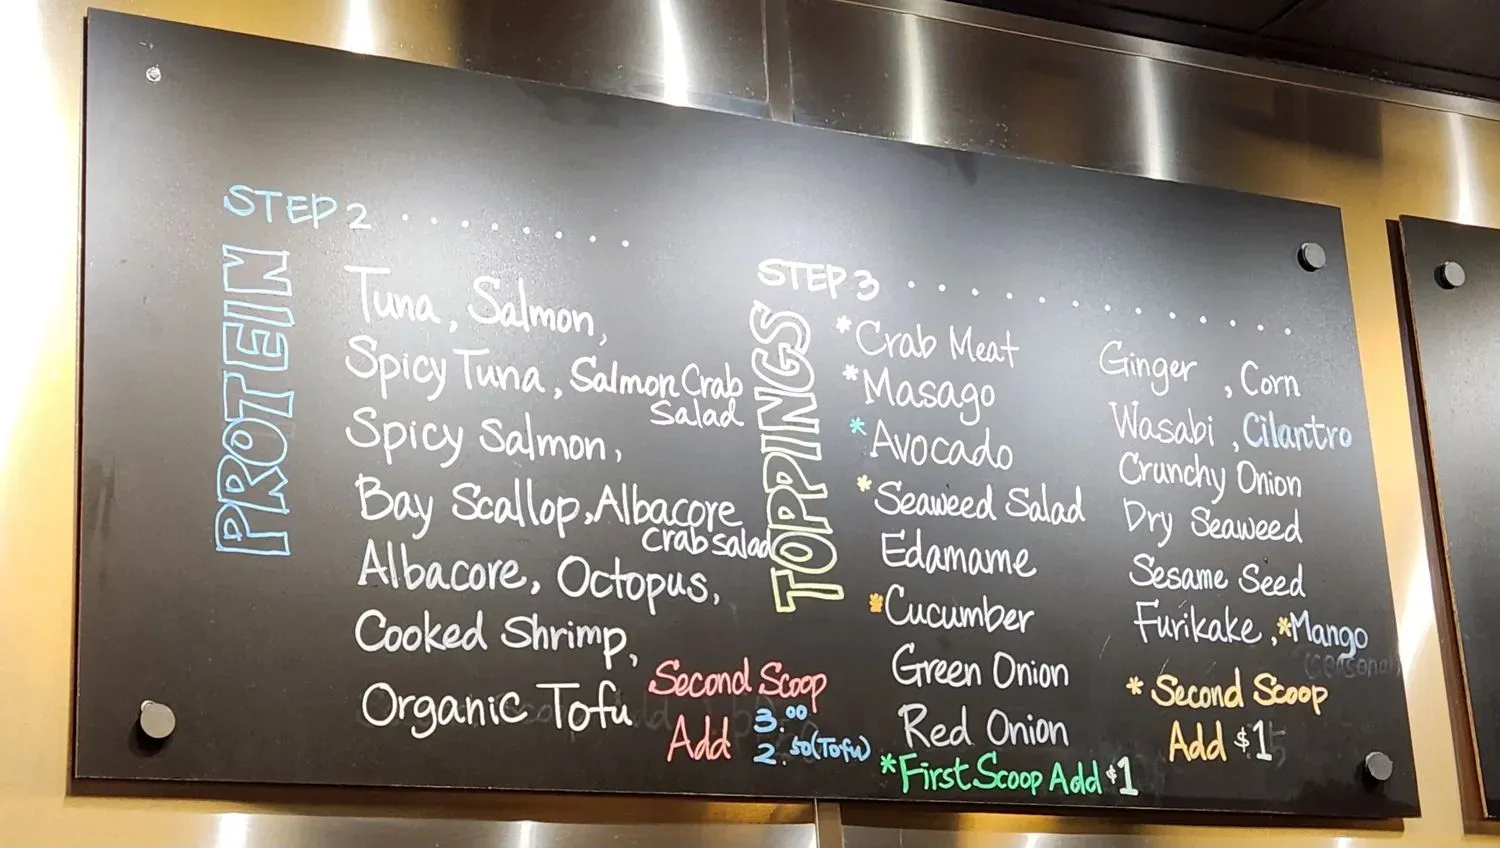 STEP 2 ........
PROTEIN
Tuna, Salmon,
Spicy Tuna, Salmon Crab
Salad
Spicy Salmon,
Bay Scallop, Albacore
Crab Salad
Albacore, Octopus,
Cooked Shrimp,
Organic Tofu
Second Scoop
Add 3.00
2.50 (Tofu)
STEP 3 ............
TOPPINGS
*Crab Meat
*Masago
*Avocado
*Seaweed Salad
Edamame
*Cucumber
Green Onion
Red Onion
*First Scoop Add $1
Ginger , Corn
Wasabi , Cilantro
Crunchy Onion
Dry Seaweed
Sesame Seed
Furikake , *Mango
(Seasonal)
* Second Scoop
Add $1